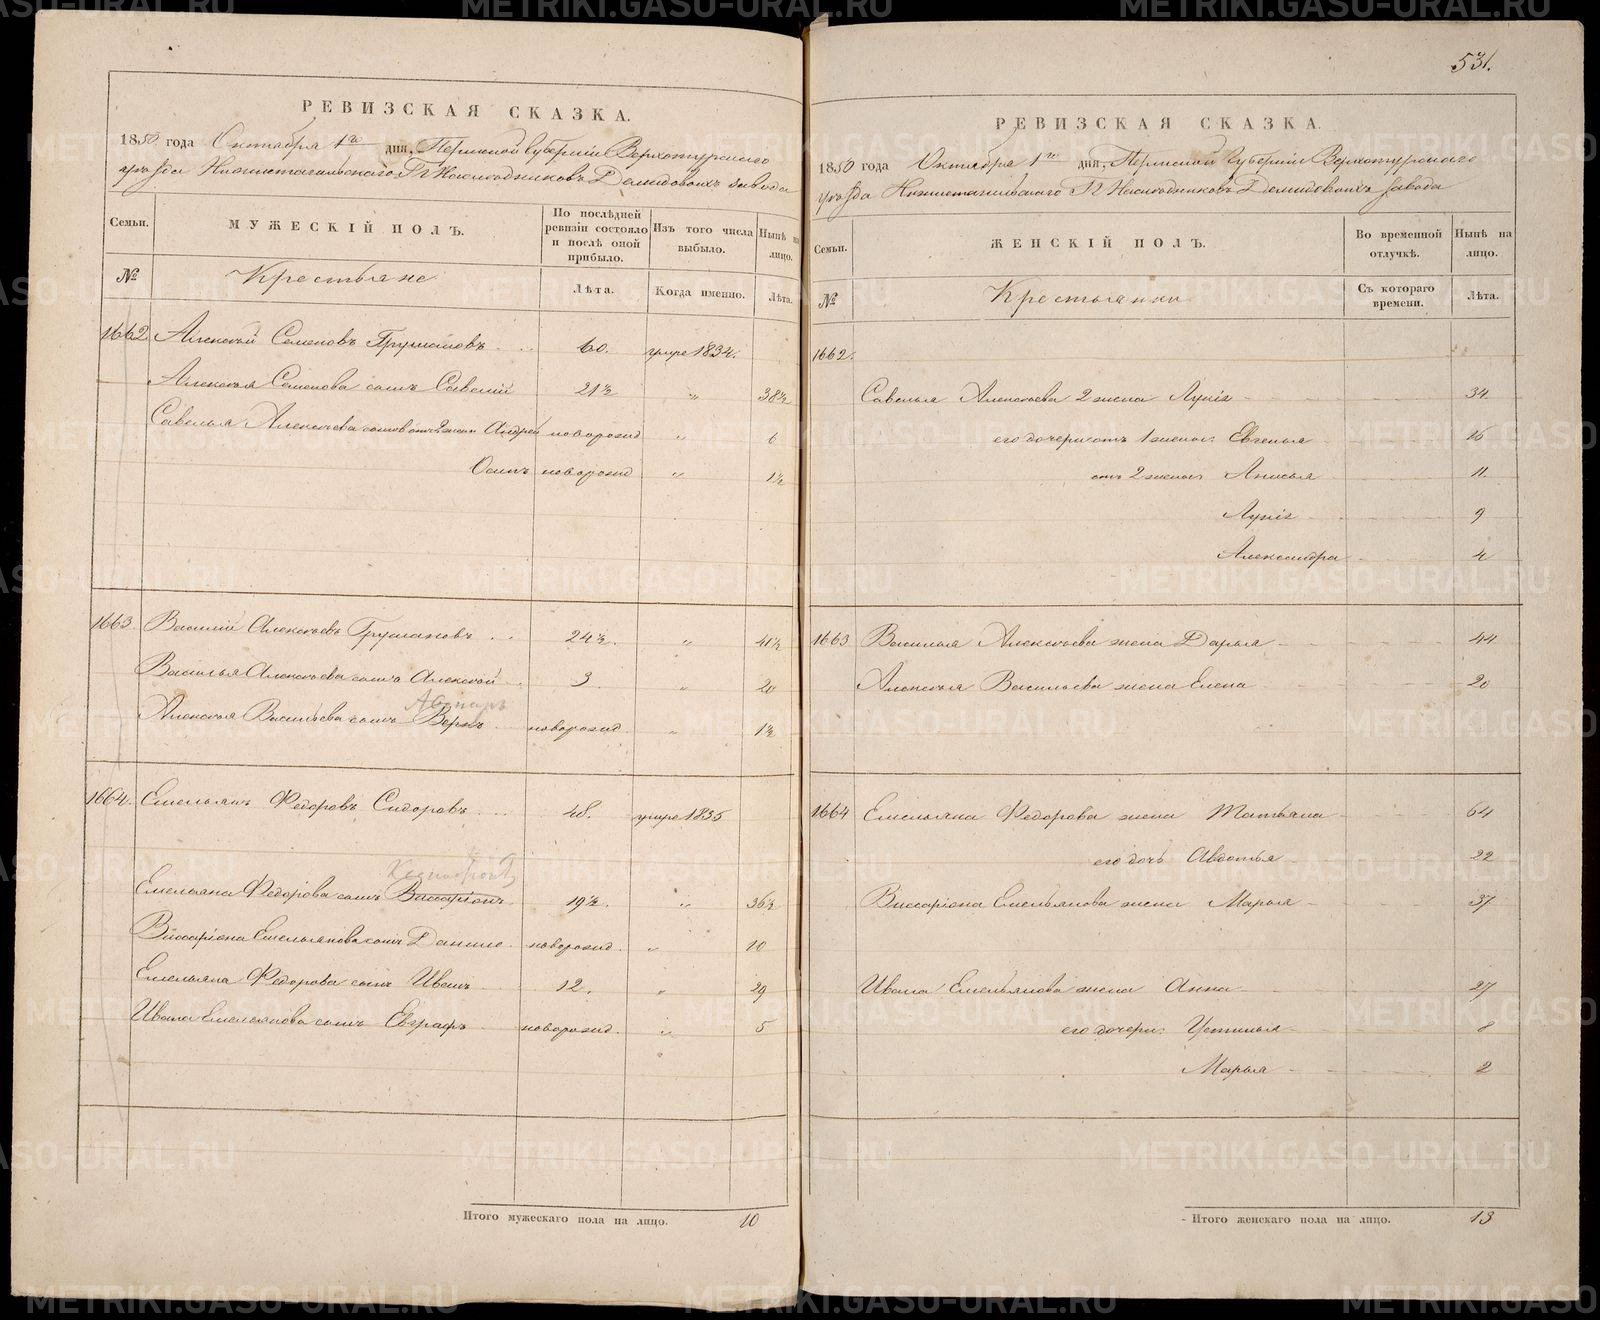 531.
РЕВИЗСКАЯ СКАЗКА.
1850 года Октября 1го дня, Пермской Губерніи Верхотурскаго
уѣзда Нижнетагильскаго Гг Наслѣдниковъ Демидовыхъ завода
Семьи. МУЖЕСКІЙ ПОЛЪ. По послѣдней ревизіи состояло и послѣ оной прибыло. Изъ того числа выбыло. Нынѣ на лицо.
№ Крестьяне Лѣта. Когда именно. Лѣта.
1662 Алексѣй Семеновъ 60. умре 1834.
Алексѣя Семенова сынъ Савелій 21½ „ 38½
Савелья Алексѣева сыновья отъ 2 жены Андрей новорожд „ 6
Осипъ новорожд „ 1½
1663. Василій Алексѣевъ 24½. „ 41½
Василья Алексѣева сынъ Алексѣй 3 „ 20
Алексѣя Васильева сынъ новорожд. „ 1½
1664. Емельянъ Федоровъ Сидоровъ 48. умре 1835
Емельяна Федорова сынъ Виссаріонъ 19½. „ 36½
Виссаріона Емельянова сынъ Данило новорожд. „ 10
Емельяна Федорова сынъ Иванъ 12. „ 29
Ивана Емельянова сынъ Евграфъ новорожд. „ 5
Итого мужескаго пола на лицо. 10
РЕВИЗСКАЯ СКАЗКА.
1850 года Октября 1го дня, Пермской Губерніи Верхотурскаго
уѣзда Нижнетагильскаго Гг Наслѣдниковъ Демидовыхъ завода
Семьи. ЖЕНСКІЙ ПОЛЪ. Во временной отлучкѣ. Нынѣ на лицо.
№ Крестьянки Съ котораго времени. Лѣта.
1662.
Савелья Алексѣева 2 жена Лукія 34
его дочери отъ 1 жены: Евгенья 16
отъ 2 жены: Анисья 11.
Лукія 9
Александра 4
1663 Василья Алексѣева жена Дарья 44
Алексѣя Васильева жена Елена 20
1664 Емельяна Федорова жена Татьяна 64
его дочь Авдотья 22
Виссаріона Емельянова жена Марья 37
Ивана Емельянова жена Анна 27
его дочери: Устинья 8
Марья 2
Итого женскаго пола на лицо. 13
METRIKI.GASO-URAL.RU